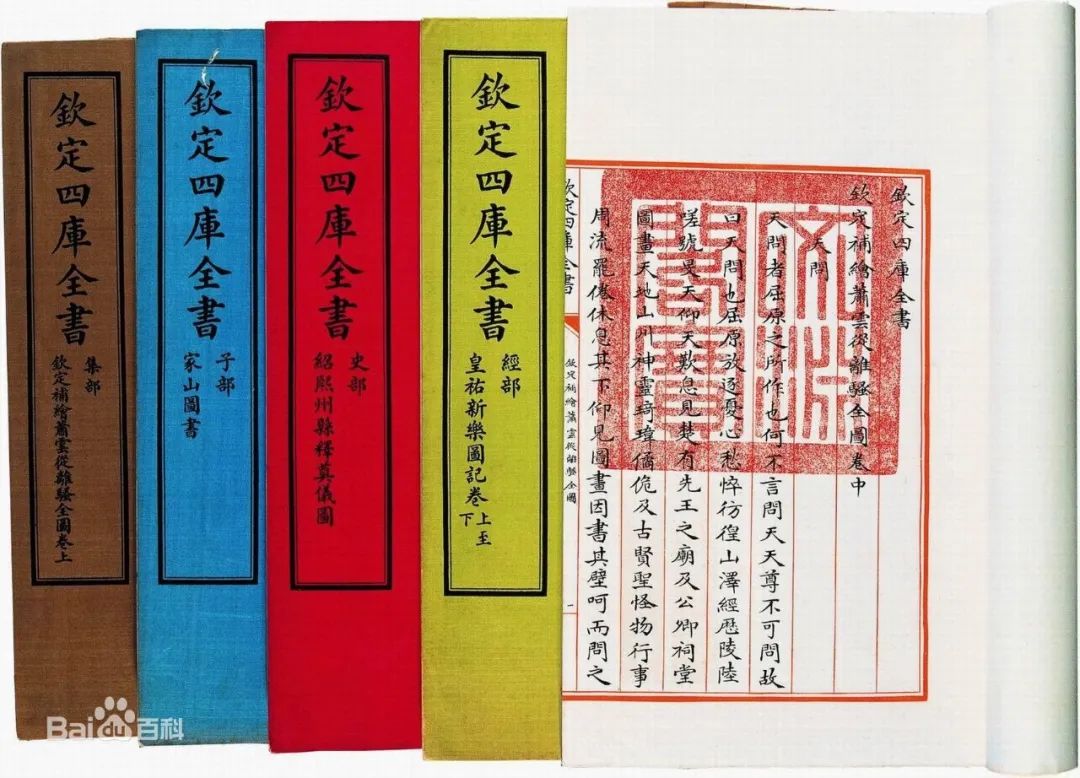 欽定四庫全書
欽定補繪蕭雲從離騷全圖卷中
天問
天問者屈原之所作也何不言問天天尊不可問故
曰天問也屈原放逐憂心愁悴彷徨山澤經歷陵陸
嗟號旻天仰天歎息見楚有先王之廟及公卿祠堂
圖畫天地山川神靈琦瑋僪佹及古賢聖怪物行事
周流罷倦休息其下仰見圖畫因書其壁呵而問之
欽定四庫全書
欽定補繪蕭雲從離騷全圖
一
文淵閣寶
欽定四庫全書
經部
皇祐新樂圖記卷上至下
欽定四庫全書
史部
紹熙州縣釋奠儀圖
欽定四庫全書
子部
家山圖書
欽定四庫全書
集部
欽定補繪蕭雲從離騷全圖卷上
Baidu百科